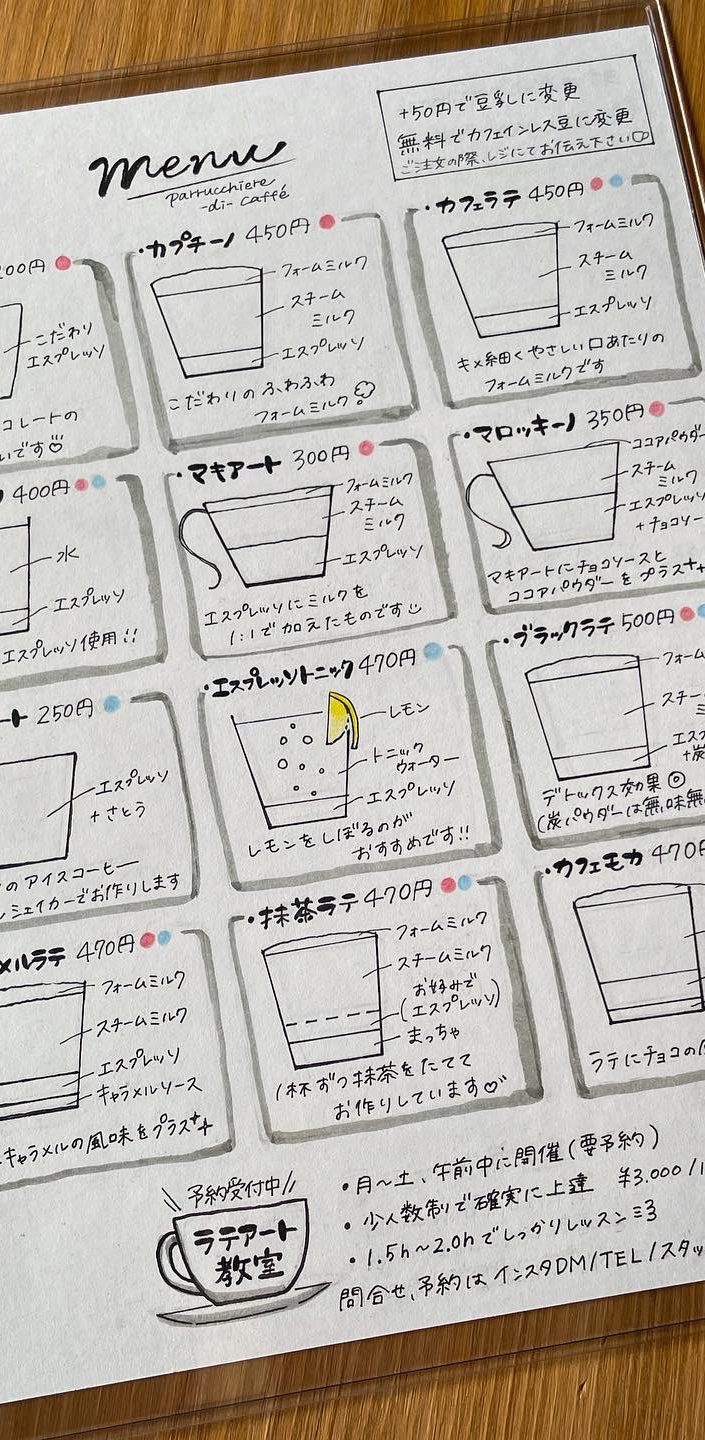 +50円で豆乳に変更
無料でカフェインレス豆に変更
ご注文の際、レジにてお伝え下さい
menu
parrucchiere
-di- caffé
200円
こだわり
エスプレッソ
コレートの
いです
・カプチーノ 450円
フォームミルク
スチーム
ミルク
エスプレッソ
こだわりのふわふわ
フォームミルク
・カフェラテ 450円
フォームミルク
スチーム
ミルク
エスプレッソ
キメ細くやさしい口あたりの
フォームミルクです
400円
水
エスプレッソ
エスプレッソ使用!!
・マキアート 300円
フォームミルク
スチーム
ミルク
エスプレッソ
エスプレッソにミルクを
1:1で加えたものです
・マロッキーノ 350円
ココアパウダー
スチーム
ミルク
エスプレッソ
+チョコソー
マキアートにチョコソースと
ココアパウダーをプラス
ート 250円
エスプレッソ
+さとう
のアイスコーヒー
シェイカーでお作りします
・エスプレッソトニック 470円
レモン
トニック
ウォーター
エスプレッソ
レモンをしぼるのが
おすすめです!!
・ブラックラテ 500円
フォーム
スチー
ミ
エスプ
+炭
デトックス効果◎
(炭パウダーは無味無
メルラテ 470円
フォームミルク
スチームミルク
エスプレッソ
キャラメルソース
キャラメルの風味をプラス
・抹茶ラテ 470円
フォームミルク
スチームミルク
お好みで
(エスプレッソ)
まっちゃ
1杯ずつ抹茶をたてて
お作りしています
・カフェモカ 470円
ラテにチョコの
\\予約受付中//
ラテアート
教室
・月〜土、午前中に開催(要予約)
・少人数制で確実に上達 ¥3.000/1
・1.5h〜2.0hでしっかりレッスン
問合せ、予約はインスタDM/TEL/スタッ